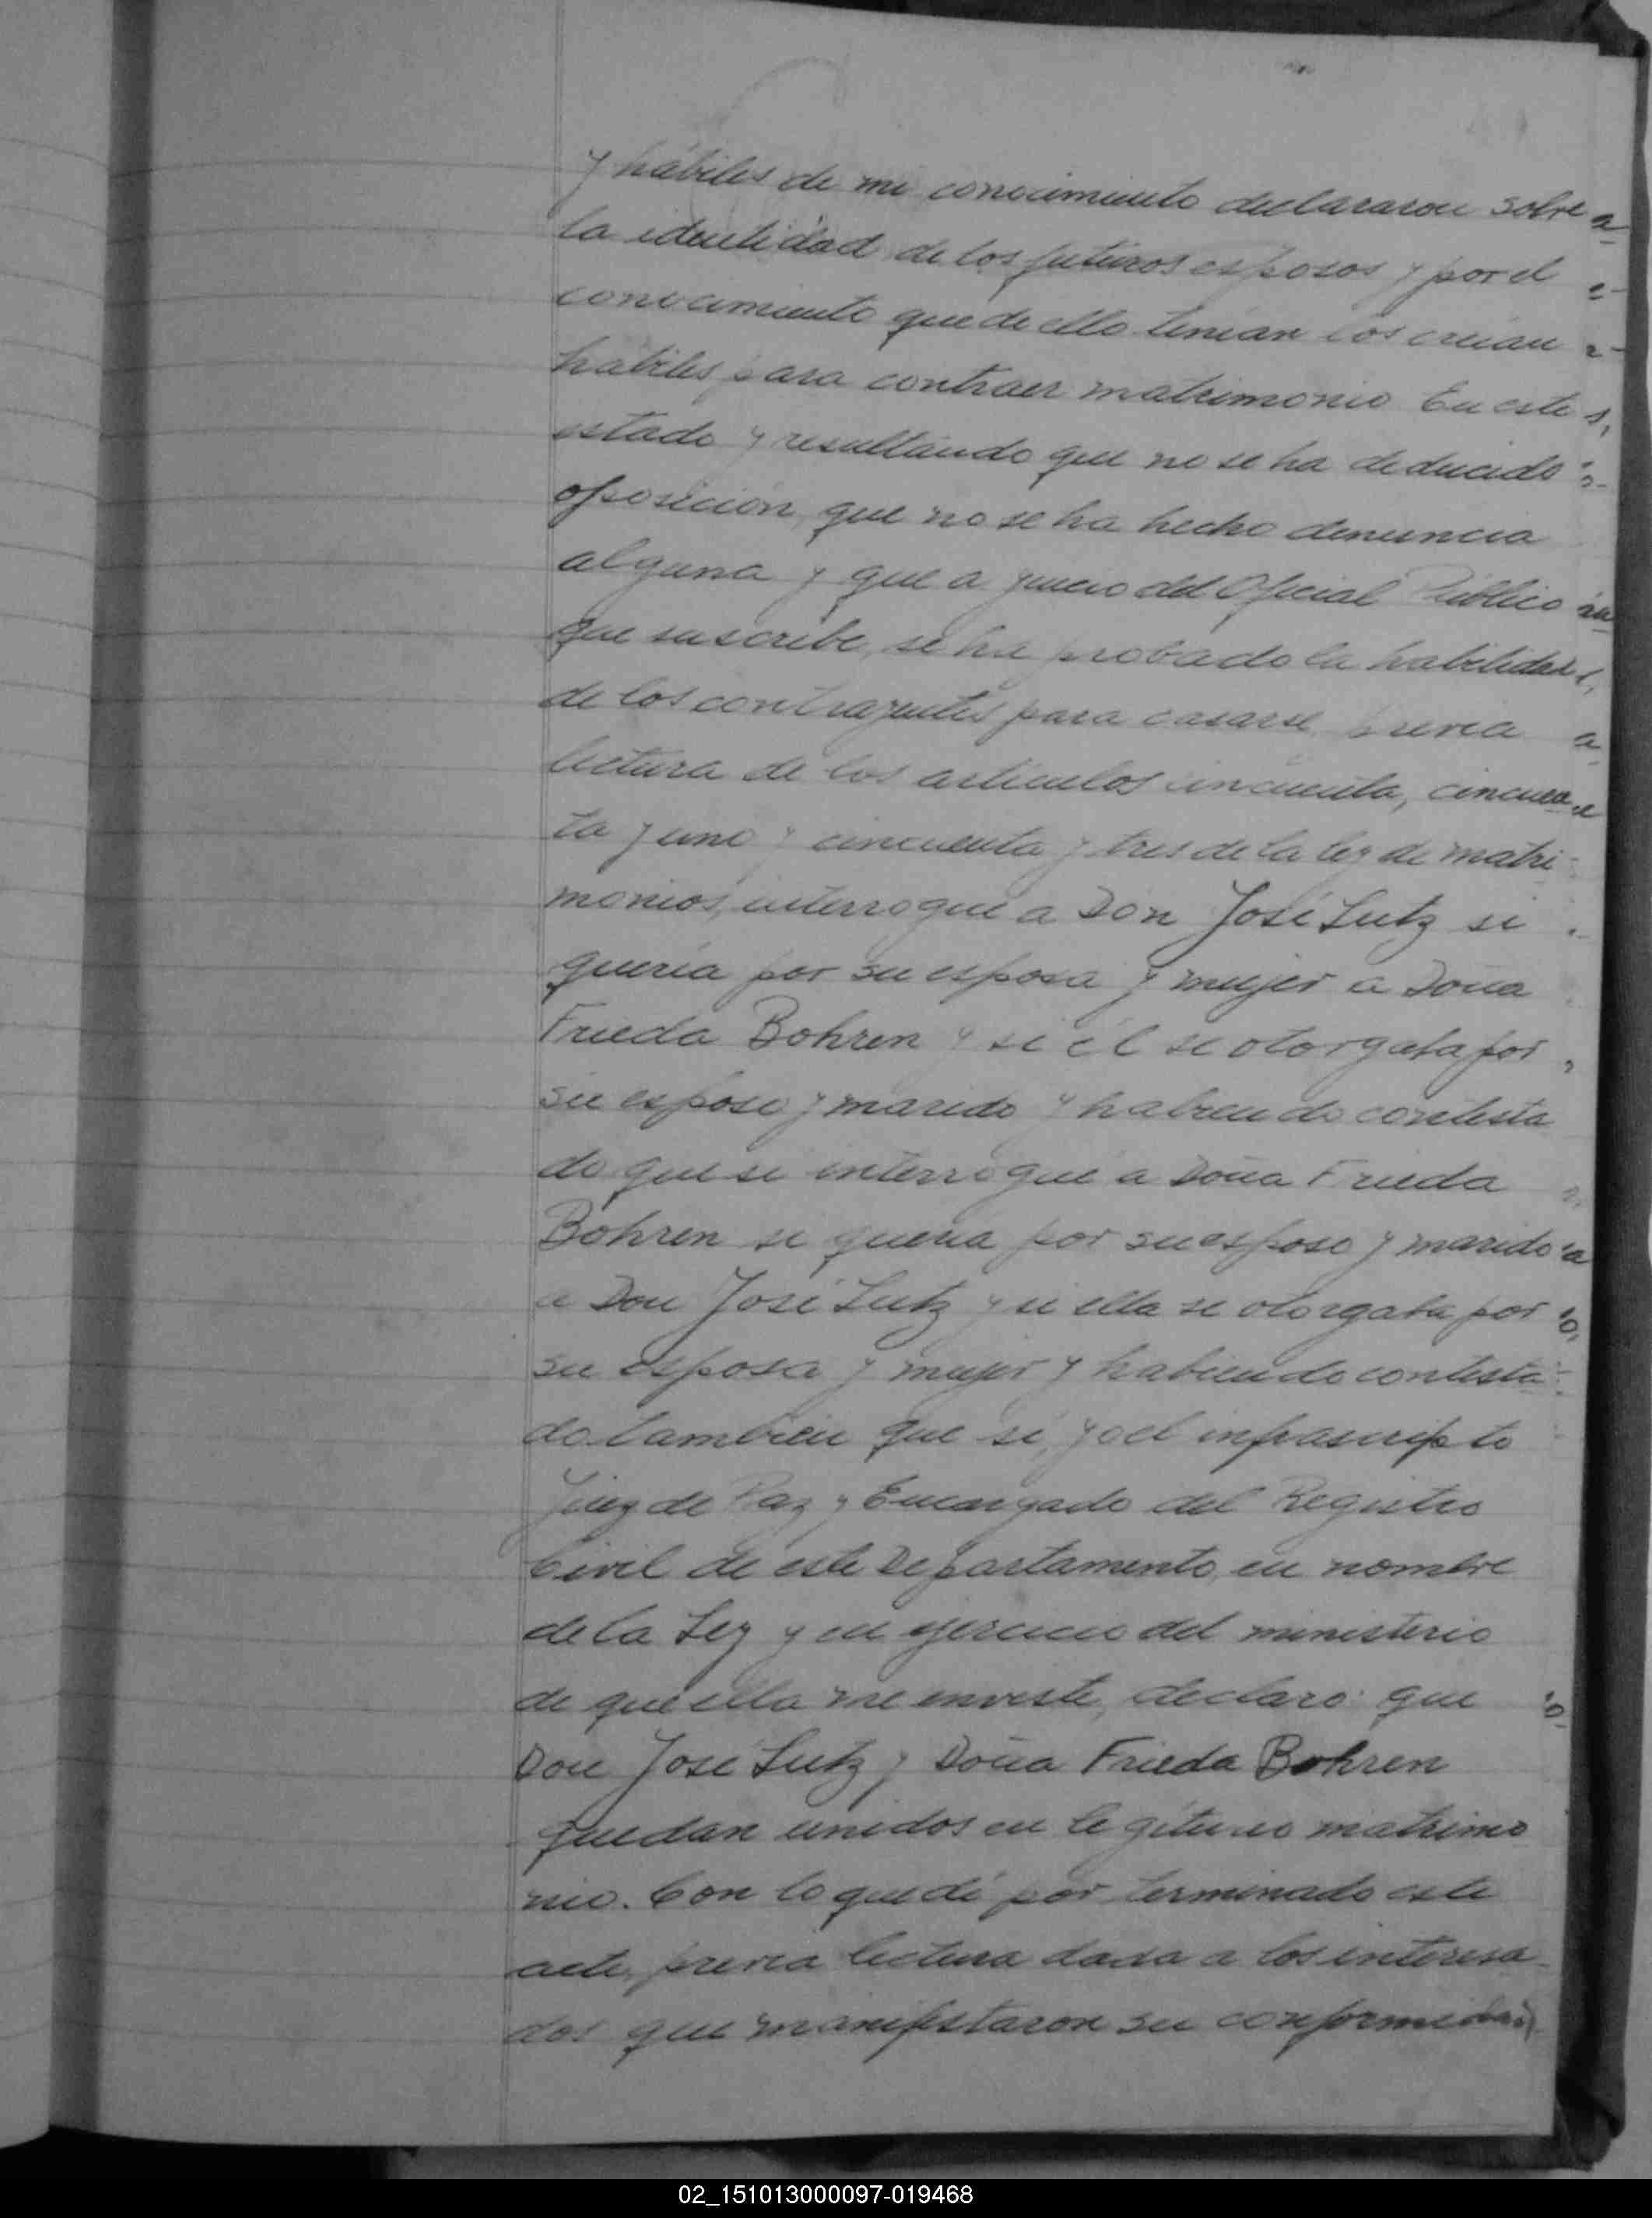 y hábiles de mi conocimiento declararon sobre
la identidad de los futuros esposos y por el
conocimiento que de ello tenían los creían
hábiles para contraer matrimonio En este
estado y resultando que no se ha deducido
oposición, que no se ha hecho denuncia
alguna y que a juicio del Oficial Público
que suscribe, se ha probado la habilidad
de los contrayentes para casarse, previa
lectura de los artículos cincuenta, cincuen
ta y uno y cincuenta y tres de la ley de matri
monios, interrogué a Don José Lutz si
quería por su esposa y mujer a Doña
Frieda Bohren y si él se otorgaba por
su esposo y marido y habiendo contesta
do que si interrogué a Doña Frieda
Bohren si quería por su esposo y marido
a Don José Lutz y si ella se otorgaba por
su esposa y mujer y habiendo contesta
do también que si, yo el infrascripto
Juez de Paz y Encargado del Registro
Civil de este Departamento, en nombre
de la Ley y en ejercicio del ministerio
de que ella me enviste, declaro: que
Don José Lutz y Doña Frieda Bohren
quedan unidos en legítimo matrimo
nio. Con lo que dí por terminado este
acto, previa lectura dada a los interesa
dos que manifestaron su conformidad
02_151013000097-019468